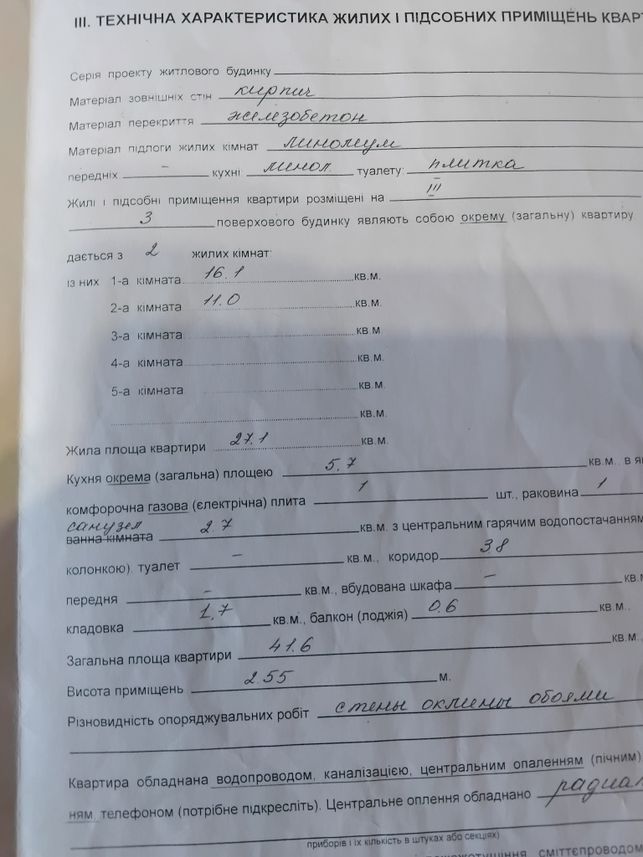 III. ТЕХНІЧНА ХАРАКТЕРИСТИКА ЖИЛИХ І ПІДСОБНИХ ПРИМІЩЕНЬ КВАРТ
Серія проекту житлового будинку
Матеріал зовнішніх стін кирпич
Матеріал перекриття железобетон
Матеріал підлоги жилих кімнат линолеум
передніх - кухні линол туалету: плитка
Жилі і підсобні приміщення квартири розміщені на III
3 поверхового будинку являють собою окрему (загальну) квартиру
дається з 2 жилих кімнат
із них 1-а кімната 16.1 кв.м.
2-а кімната 11.0 кв.м.
3-а кімната кв.м
4-а кімната кв.м.
5-а кімната кв.м.
кв.м.
Жила площа квартири 27.1 кв.м.
Кухня окрема (загальна) площею 5.7 кв.м. в
комфорочна газова (єлектрічна) плита 1 шт., раковина 1
санузел
ванна кімната 2.7 кв.м. з центральним гарячим водопостачанням
колонкою). туалет - кв.м., коридор 3.8
передня - кв.м., вбудована шкафа - кв.м
кладовка 1.7 кв.м., балкон (лоджія) 0.6 кв.м.,
Загальна площа квартири 41.6 кв.м.,
Висота приміщень 2.55 м.
Різновидність опоряджувальних робіт стены оклеены обоями
Квартира обладнана водопроводом, каналізацією, центральним опаленням (пічним)
ням, телефоном (потрібне підкресліть). Центральне оплення обладнано радиа
приборів і їх кількість в штуках або секціях)
сміттєпроводом